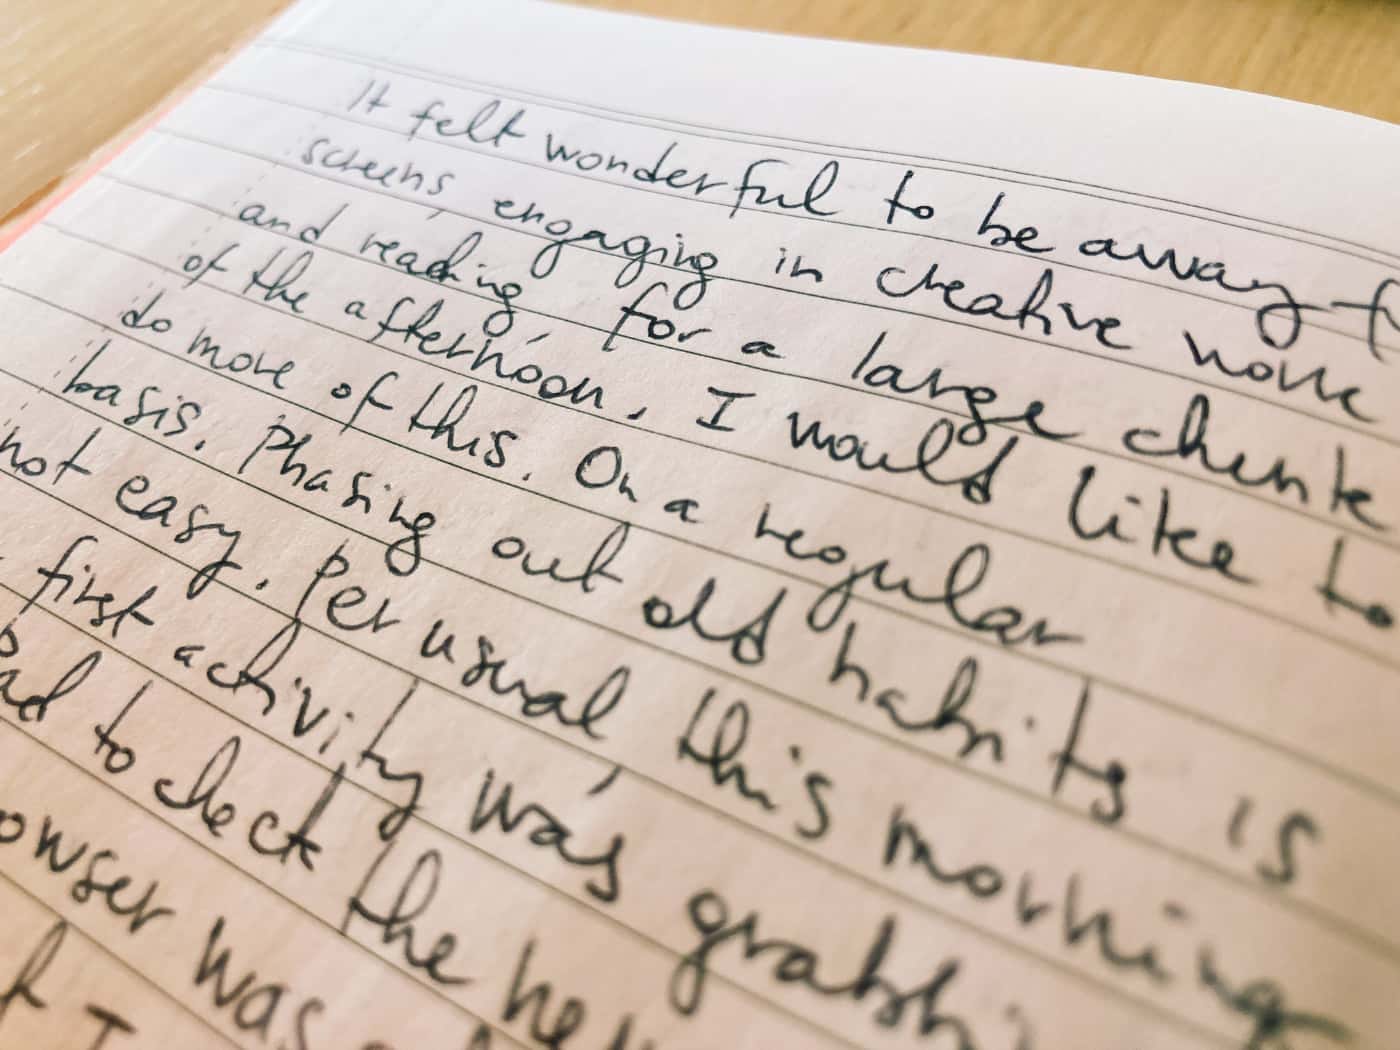 It felt wonderful to be away
screens, engaging in creative work
and reading for a large chunk
of the afternoon. I would like to
do more of this. On a regular
basis. Phasing out old habits is
not easy. Per usual this morning
first activity was
to check the
was
I